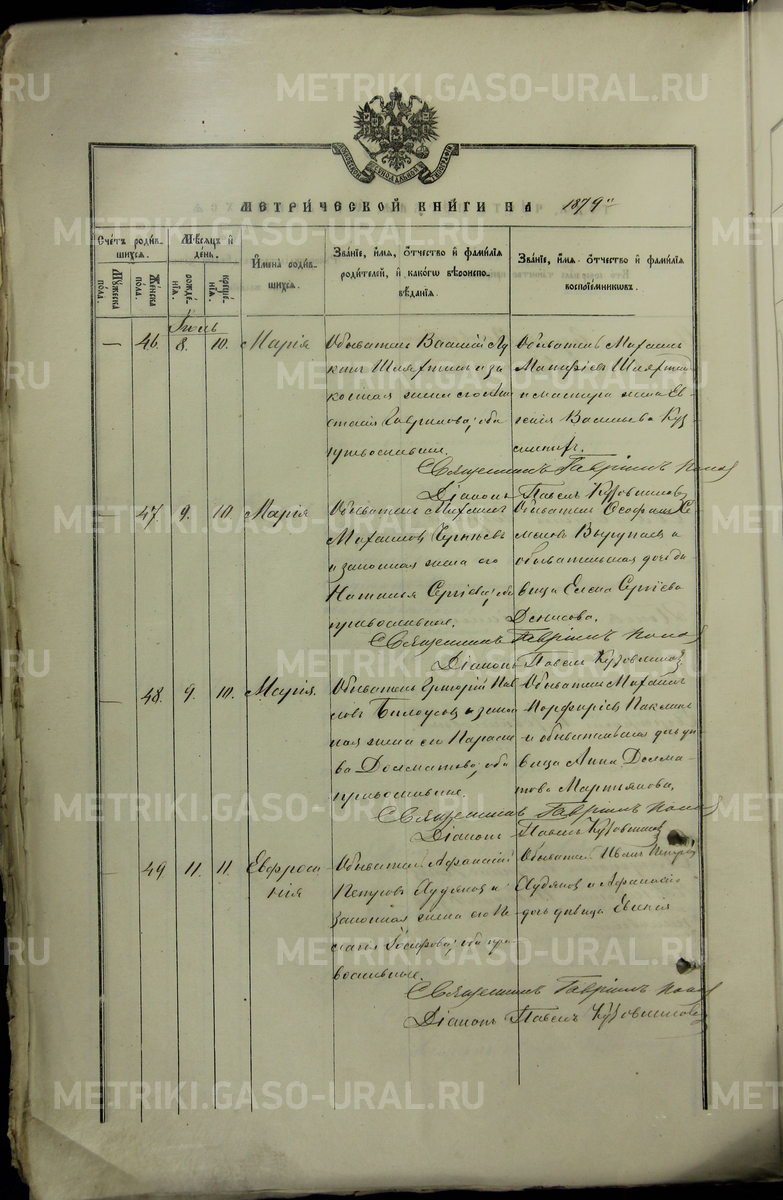 METRIKI.GASO-URAL.RU
МЕТРИ́ЧЕСКОЙ КНИ́ГИ НА 1879 г
Сче́тъ роди́вшихсѧ.
Му́жеска пола
Же́нска пола
Мѣ́сѧцъ и́ де́нь.
рожде́нїѧ.
креще́нїѧ.
И҆мена̀ роди́вшихсѧ.
Зва́нїе, и҆́мѧ, ѻ҆́тчество и҆ фами́лїѧ
роди́телей, и҆ како́гѡ вѣроиспо-
вѣ́данїѧ.
Зва́нїе, и҆́мѧ, ѻ҆́тчество и҆ фами́лїѧ
воспрїе́мникѡвъ.
Іюль
— 46. 8. 10. Марія
Обыватель Василій Лу
кинъ Шляхтинъ и за
конная жена его Ана
стасія Гаврилова; оба
православные.
Обыватель Михаилъ
Шляхтин
и мастера жена Ев
генія Васильева Куз
Священникъ Гавріилъ Попов
Діаконъ Павелъ Кузовников
47. 9. 10. Марія
Обыватель Михаилъ
Михаиловъ
и законная жена его
Наталья Сергіева; оба
православные.
Обыватель Ѳеофанъ Се
меновъ и
обывательская дочь дѣ
вица Елена Сергіева
Денисова.
Священникъ Гавріилъ Попов
Діаконъ Павелъ Кузовников
— 48. 9. 10. Марія.
Обыватель Григорій Пав
ловъ Бѣлоусовъ и закон
ная жена его Параске
ва Долматова; оба
православные.
Обыватель Михаилъ
Порфиріевъ
и обывательская дочь дѣ
вица Анна Долма
това Мартьянова.
Священникъ Гавріилъ Попов
Діаконъ Павелъ Кузовников
— 49 11. 11. Евфроси-
нія
Обыватель Аѳанасій
Петровъ и
законная жена его Пе
лагія Іосифова; оба пра-
вославные.
Обыватель Иванъ Петров
и Аѳанасія
дочь дѣвица Евгенія
Священникъ Гавріилъ Попов
Діаконъ Павелъ Кузовников